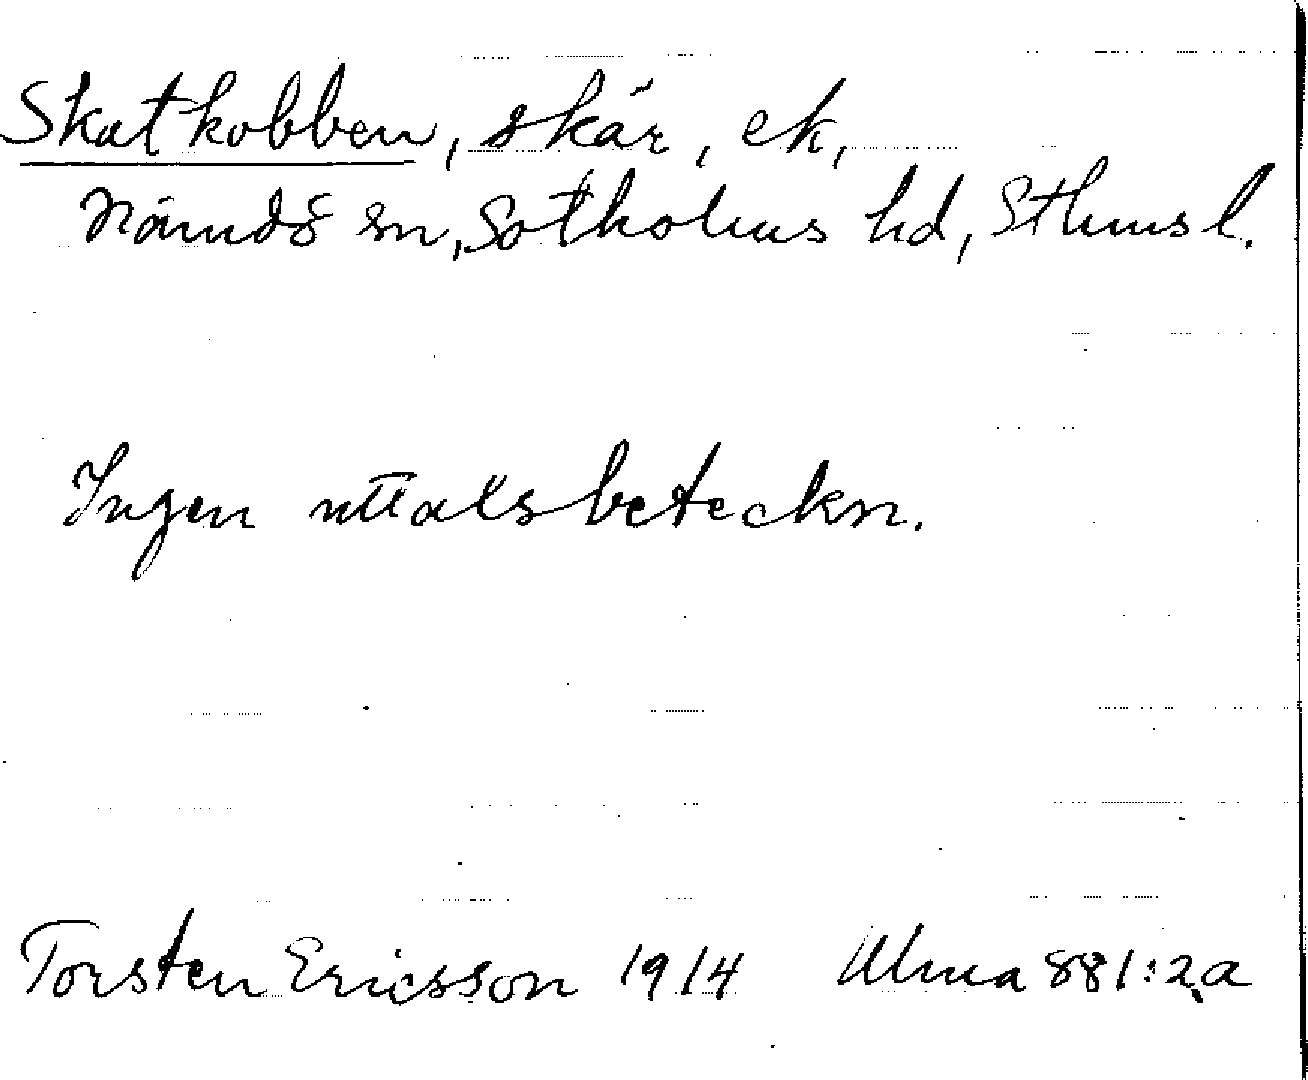 Skatkobben, skär, ek,
Nämdö sn, Sotholms hd, Sthms l.
Ingen uttalsbeteckn.
Torsten Ericsson 1914 Ulma 881:2a